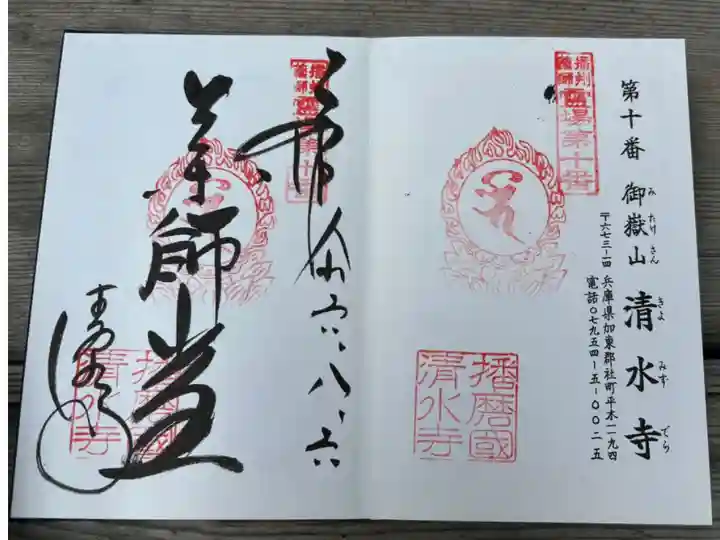 播州
薬師
霊場第十番
第十番 御嶽山 清水寺
み たけ さん きよ みず でら
〒六七三-一四 兵庫県加東郡社町平木一一九四
電話〇七九五四-五-〇〇二五
播磨國
清水寺
奉拝 六、八、六
薬師堂
清水寺
播州
薬師
播磨國
清水寺